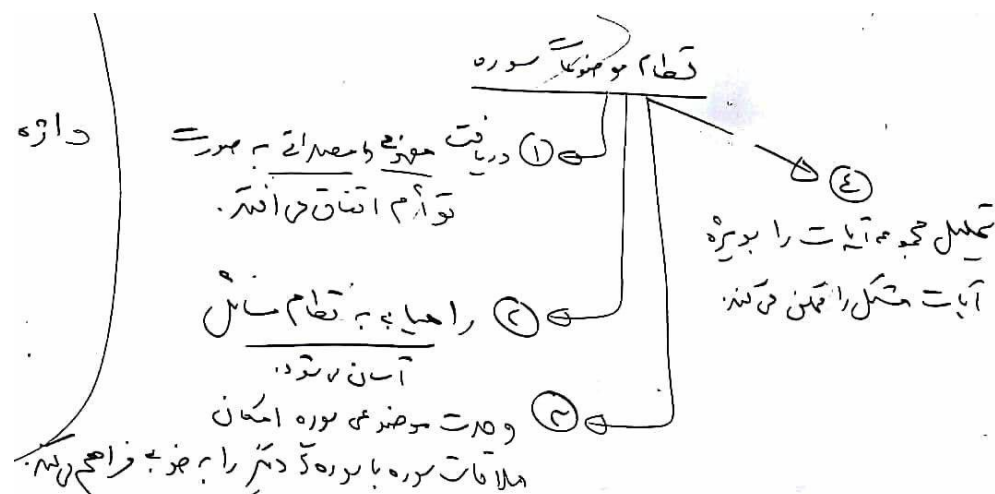 نظام موضوعات سوره
واژه
① دریافت مفهومی و مصداقی به صورت
توأم اتفاق می افتد.
② راهیابی به نظام مسائل
آسان می شود.
③ وحدت موضوعی سوره امکان
ملاقات سوره با سوره دیگر را به خوبی فراهم می کند.
④
تحلیل مجموعه آیات را بویژه
آیات مشکل را ممکن می کند.